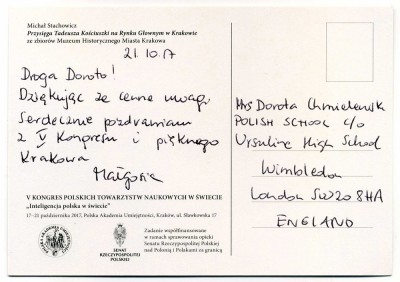 Michał Stachowicz
Przysięga Tadeusza Kościuszki na Rynku Głównym w Krakowie
ze zbiorów Muzeum Historycznego Miasta Krakowa
21.10.17
Droga Doroto!
Dziękując za cenne uwagi
Serdecznie pozdrawiam
z V Kongresu i pięknego
Krakowa
Małgosia
V KONGRES POLSKICH TOWARZYSTW NAUKOWYCH W ŚWIECIE
"Inteligencja polska w świecie"
17-21 października 2017, Polska Akademia Umiejętności, Kraków, ul. Sławkowska 17
SENAT
RZECZYPOSPOLITEJ
POLSKIEJ
Zadanie współfinansowane
w ramach sprawowania opieki
Senatu Rzeczypospolitej Polskiej
nad Polonią i Polakami za granicą
Mrs Dorota Chmielewsk
POLISH SCHOOL c/o
Ursuline High School
Wimbledon
London SW20 8HA
ENGLAND